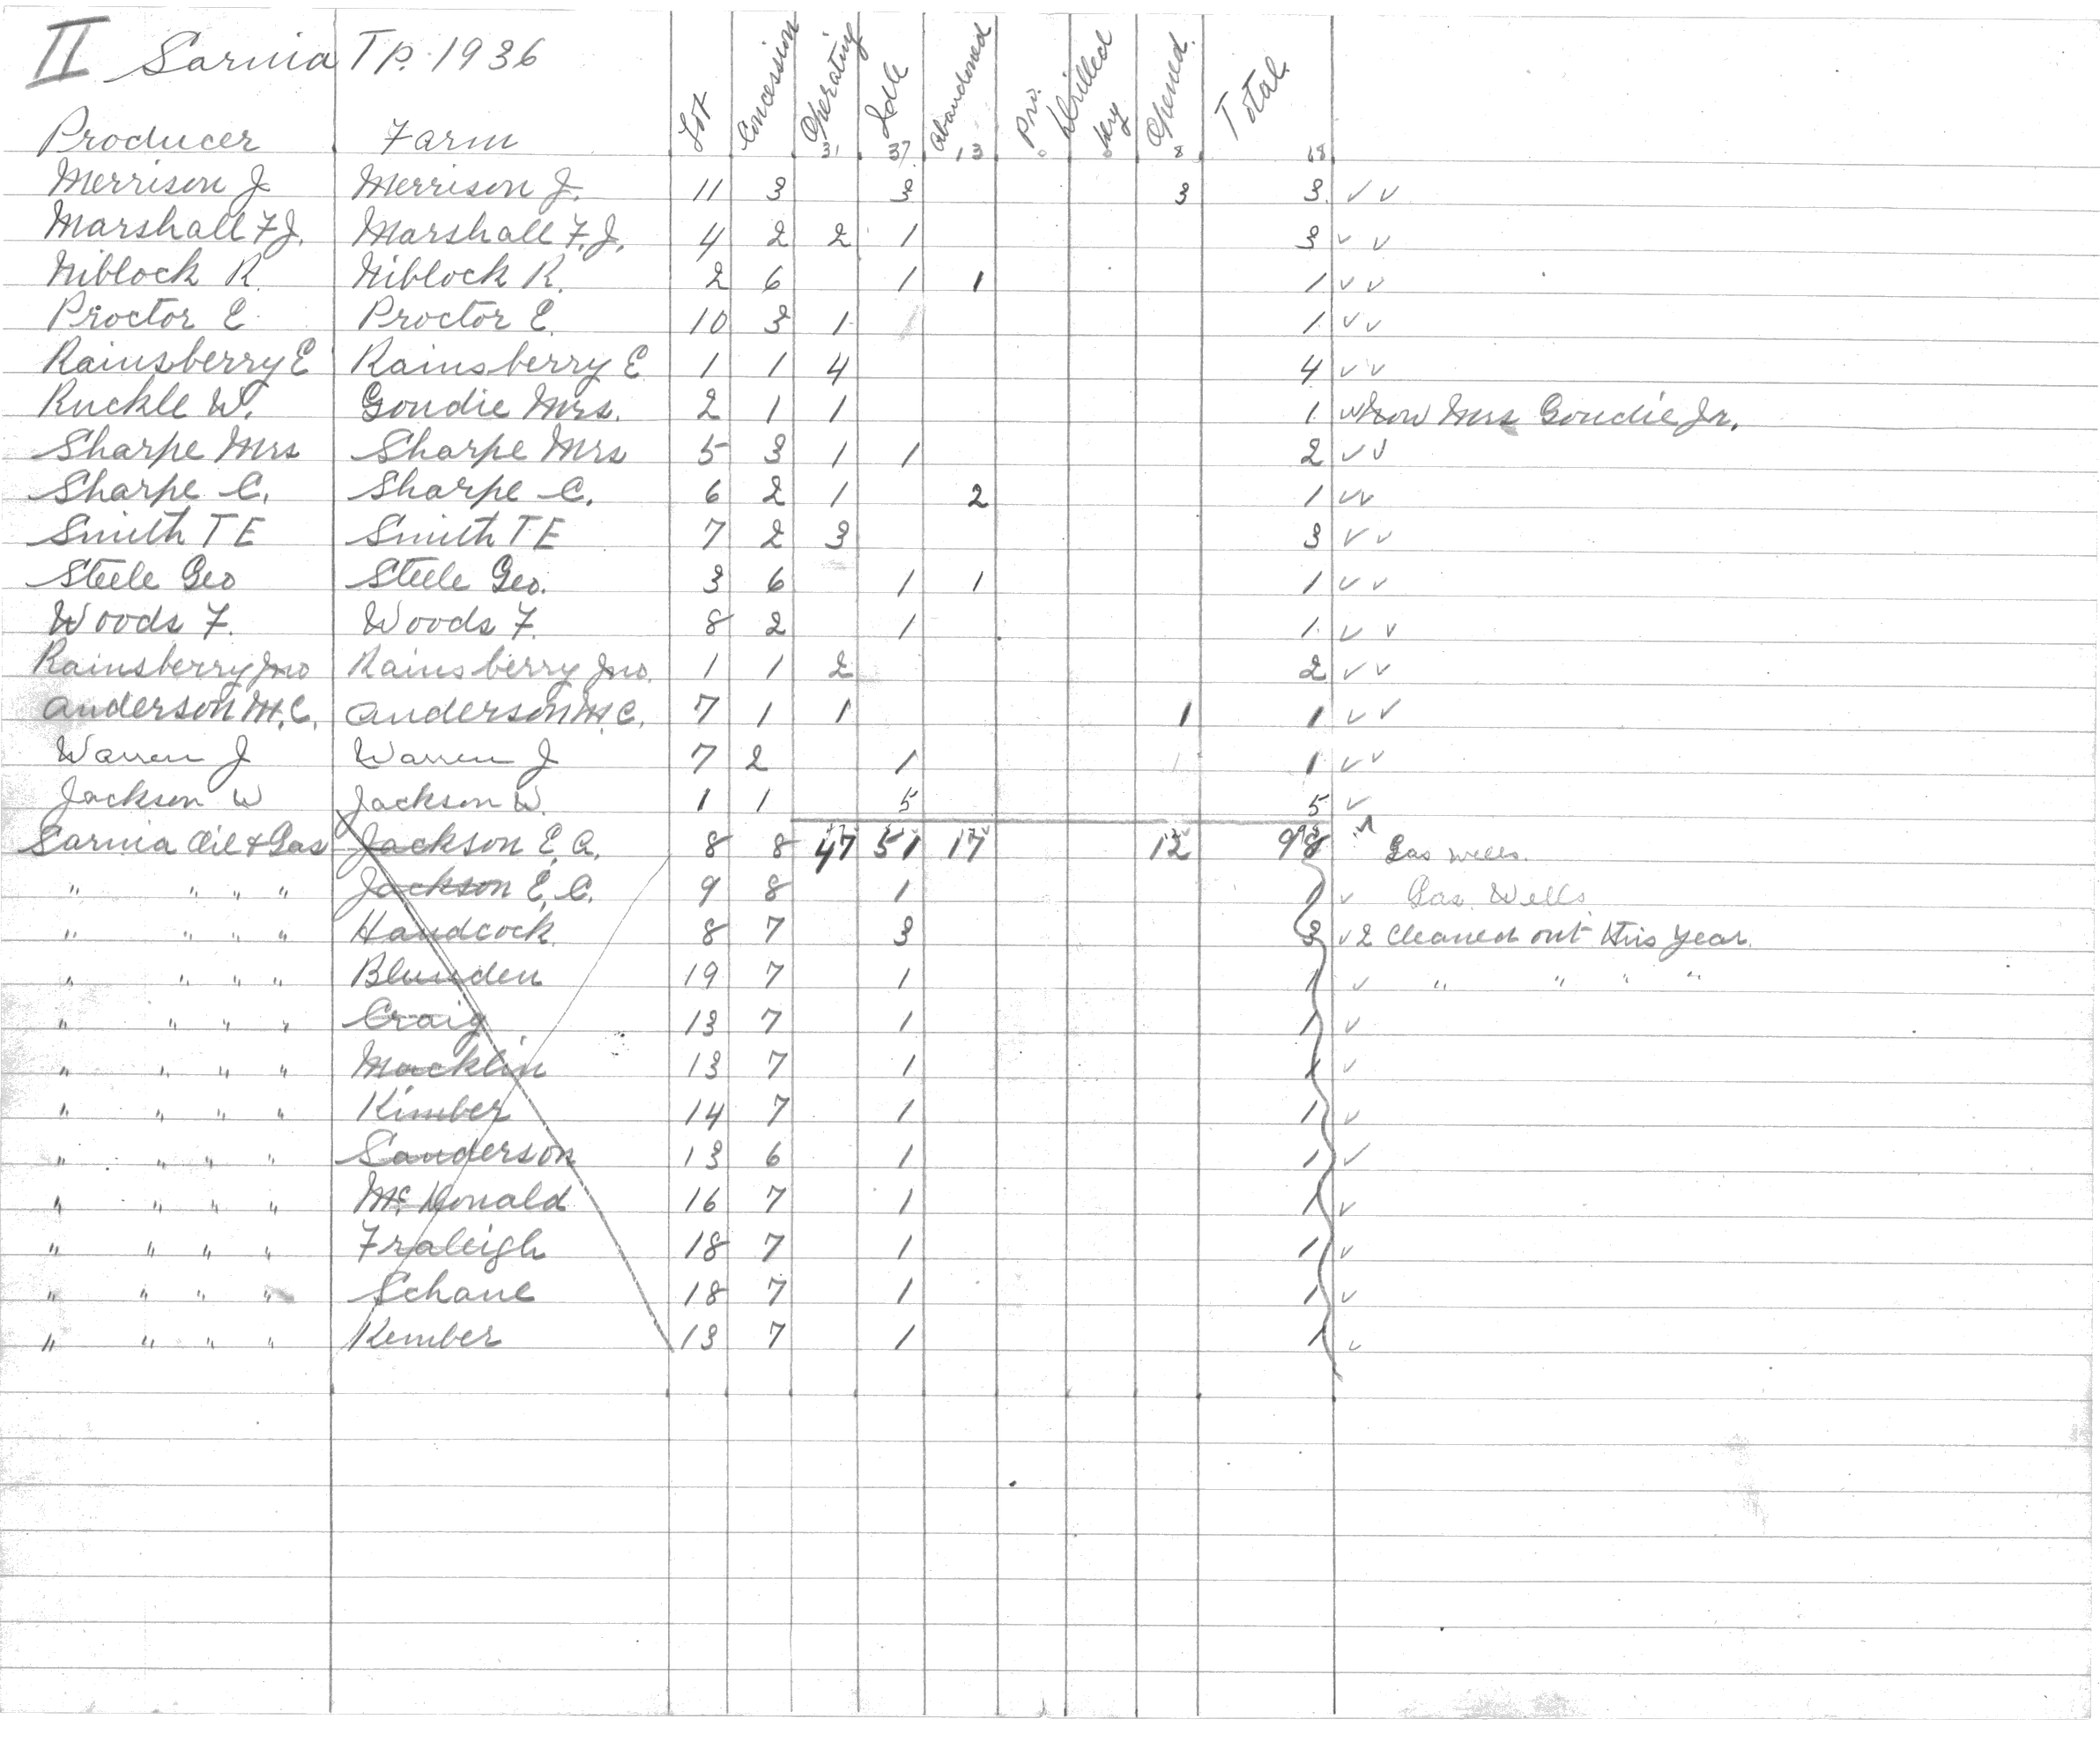 II Sarnia TP. 1936
Producer Farm Lot Concession Operating Idle Abandoned Pro. Drilled Dry Opened Total
31 37 13 0 0 8 68
Merrison J Merrison J. 11 3 3 3 3 ✓ ✓
Marshall F.J. Marshall F.J. 4 2 2 1 3 ✓ ✓
Niblock R. Niblock R. 2 6 1 1 1 ✓ ✓
Proctor E. Proctor E. 10 3 1 1 ✓ ✓
Rainsberry E Rainsberry E 1 1 4 4 ✓ ✓
Ruckle W. Goudie Mrs. 2 1 1 1 ✓ now Mrs Goudie Jr.
Sharpe Mrs Sharpe Mrs 5 3 1 1 2 ✓ ✓
Sharpe C. Sharpe C. 6 2 1 2 1 ✓✓
Smith T E Smith T E 7 2 3 3 ✓ ✓
Steele Geo Steele Geo. 3 6 1 1 1 ✓ ✓
Woods F. Woods F. 8 2 1 1 ✓ ✓
Rainsberry Jno Rainsberry Jno. 1 1 2 2 ✓ ✓
Anderson M.C. Anderson M.C. 7 1 1 1 1 ✓ ✓
Warren J Warren J 7 2 1 1 ✓ ✓
Jackson W Jackson W. 1 1 5 5 ✓
Sarnia Oil & Gas Jackson E. A. 8 8 47 51 17 12 98 Gas wells.
" " " " Jackson E. C. 9 8 1 1 ✓ Gas Wells
" " " " Handcock 8 7 3 3 ✓ 2 cleaned out this year.
" " " " Blunden 19 7 1 1 ✓ " " " "
" " " " Craig 13 7 1 1 ✓
" " " " Macklin 13 7 1 1 ✓
" " " " Kimber 14 7 1 1 ✓
" " " " Sanderson 13 6 1 1 ✓
" " " " McDonald 16 7 1 1 ✓
" " " " Fraleigh 18 7 1 1 ✓
" " " " Schane 18 7 1 1 ✓
" " " " Kember 13 7 1 1 ✓